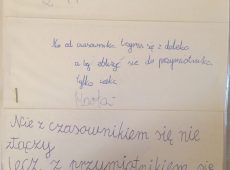 Nie od czasownika trzyma się z daleka
a by zbliżyć się do przymiotnika
tylko czeka
Marta
Nie z czasownikiem się nie
złączy
lecz z przymiotnikiem się